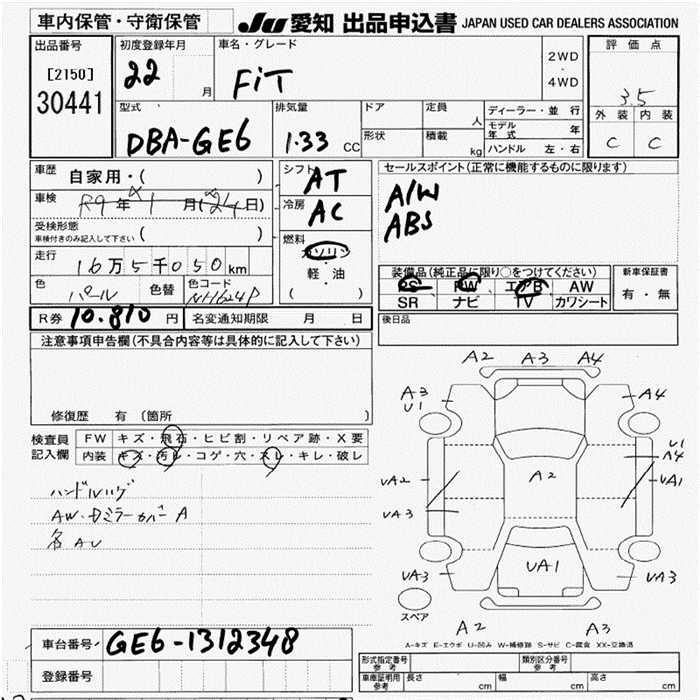 車内保管・守衛保管 JU 愛知 出品申込書 JAPAN USED CAR DEALERS ASSOCIATION
出品番号
[2150]
30441
初度登録年月
22 月
車名・グレード
FiT
2WD
・
4WD
評価点
3.5
外装 内装
C C
型式
DBA-GE6
排気量
1.33 CC
ドア
形状
定員 人
積載 kg
ディーラー・並行
モデル年式 年
ハンドル 左・右
車歴 自家用・( )
車検 R9年 1月(24日)
受検形態
車検付きのみ記入して下さい ( )
走行 16万5千050km
色 パール 色替 色コード NH624P
シフト AT
冷房 AC
燃料
ガソリン
・
軽・油
( )
セールスポイント(正常に機能するものに限ります)
A/W
ABS
装備品(純正品に限り○をつけてください)
PS PW エアB AW
SR ナビ TV カワシート
新車保証書
有・無
R券 10.810 円 名変通知期限 月 日
後日品
注意事項申告欄(不具合内容等は具体的に記入して下さい)
修復歴 有(箇所 )
検査員記入欄
FW キズ・飛石・ヒビ割・リペア跡・X要
内装 キズ・汚レ・コゲ・穴・スレ・キレ・破レ
AW・Dミラーカバー A
A2 A3 A4
A3
U1
A4
U1
A4
UA2
UA1
UA3
A2
UA1
UA3
UA3
スペア
A2
A3
A-キズ E-エクボ U-凹み W-補修跡 S-サビ C-腐食 XX-交換済
車台番号 GE6-1312348
登録番号
形式指定番号 参考 類別区分番号 参考
車庫証明用 参考 長さ cm 幅 cm 高さ cm